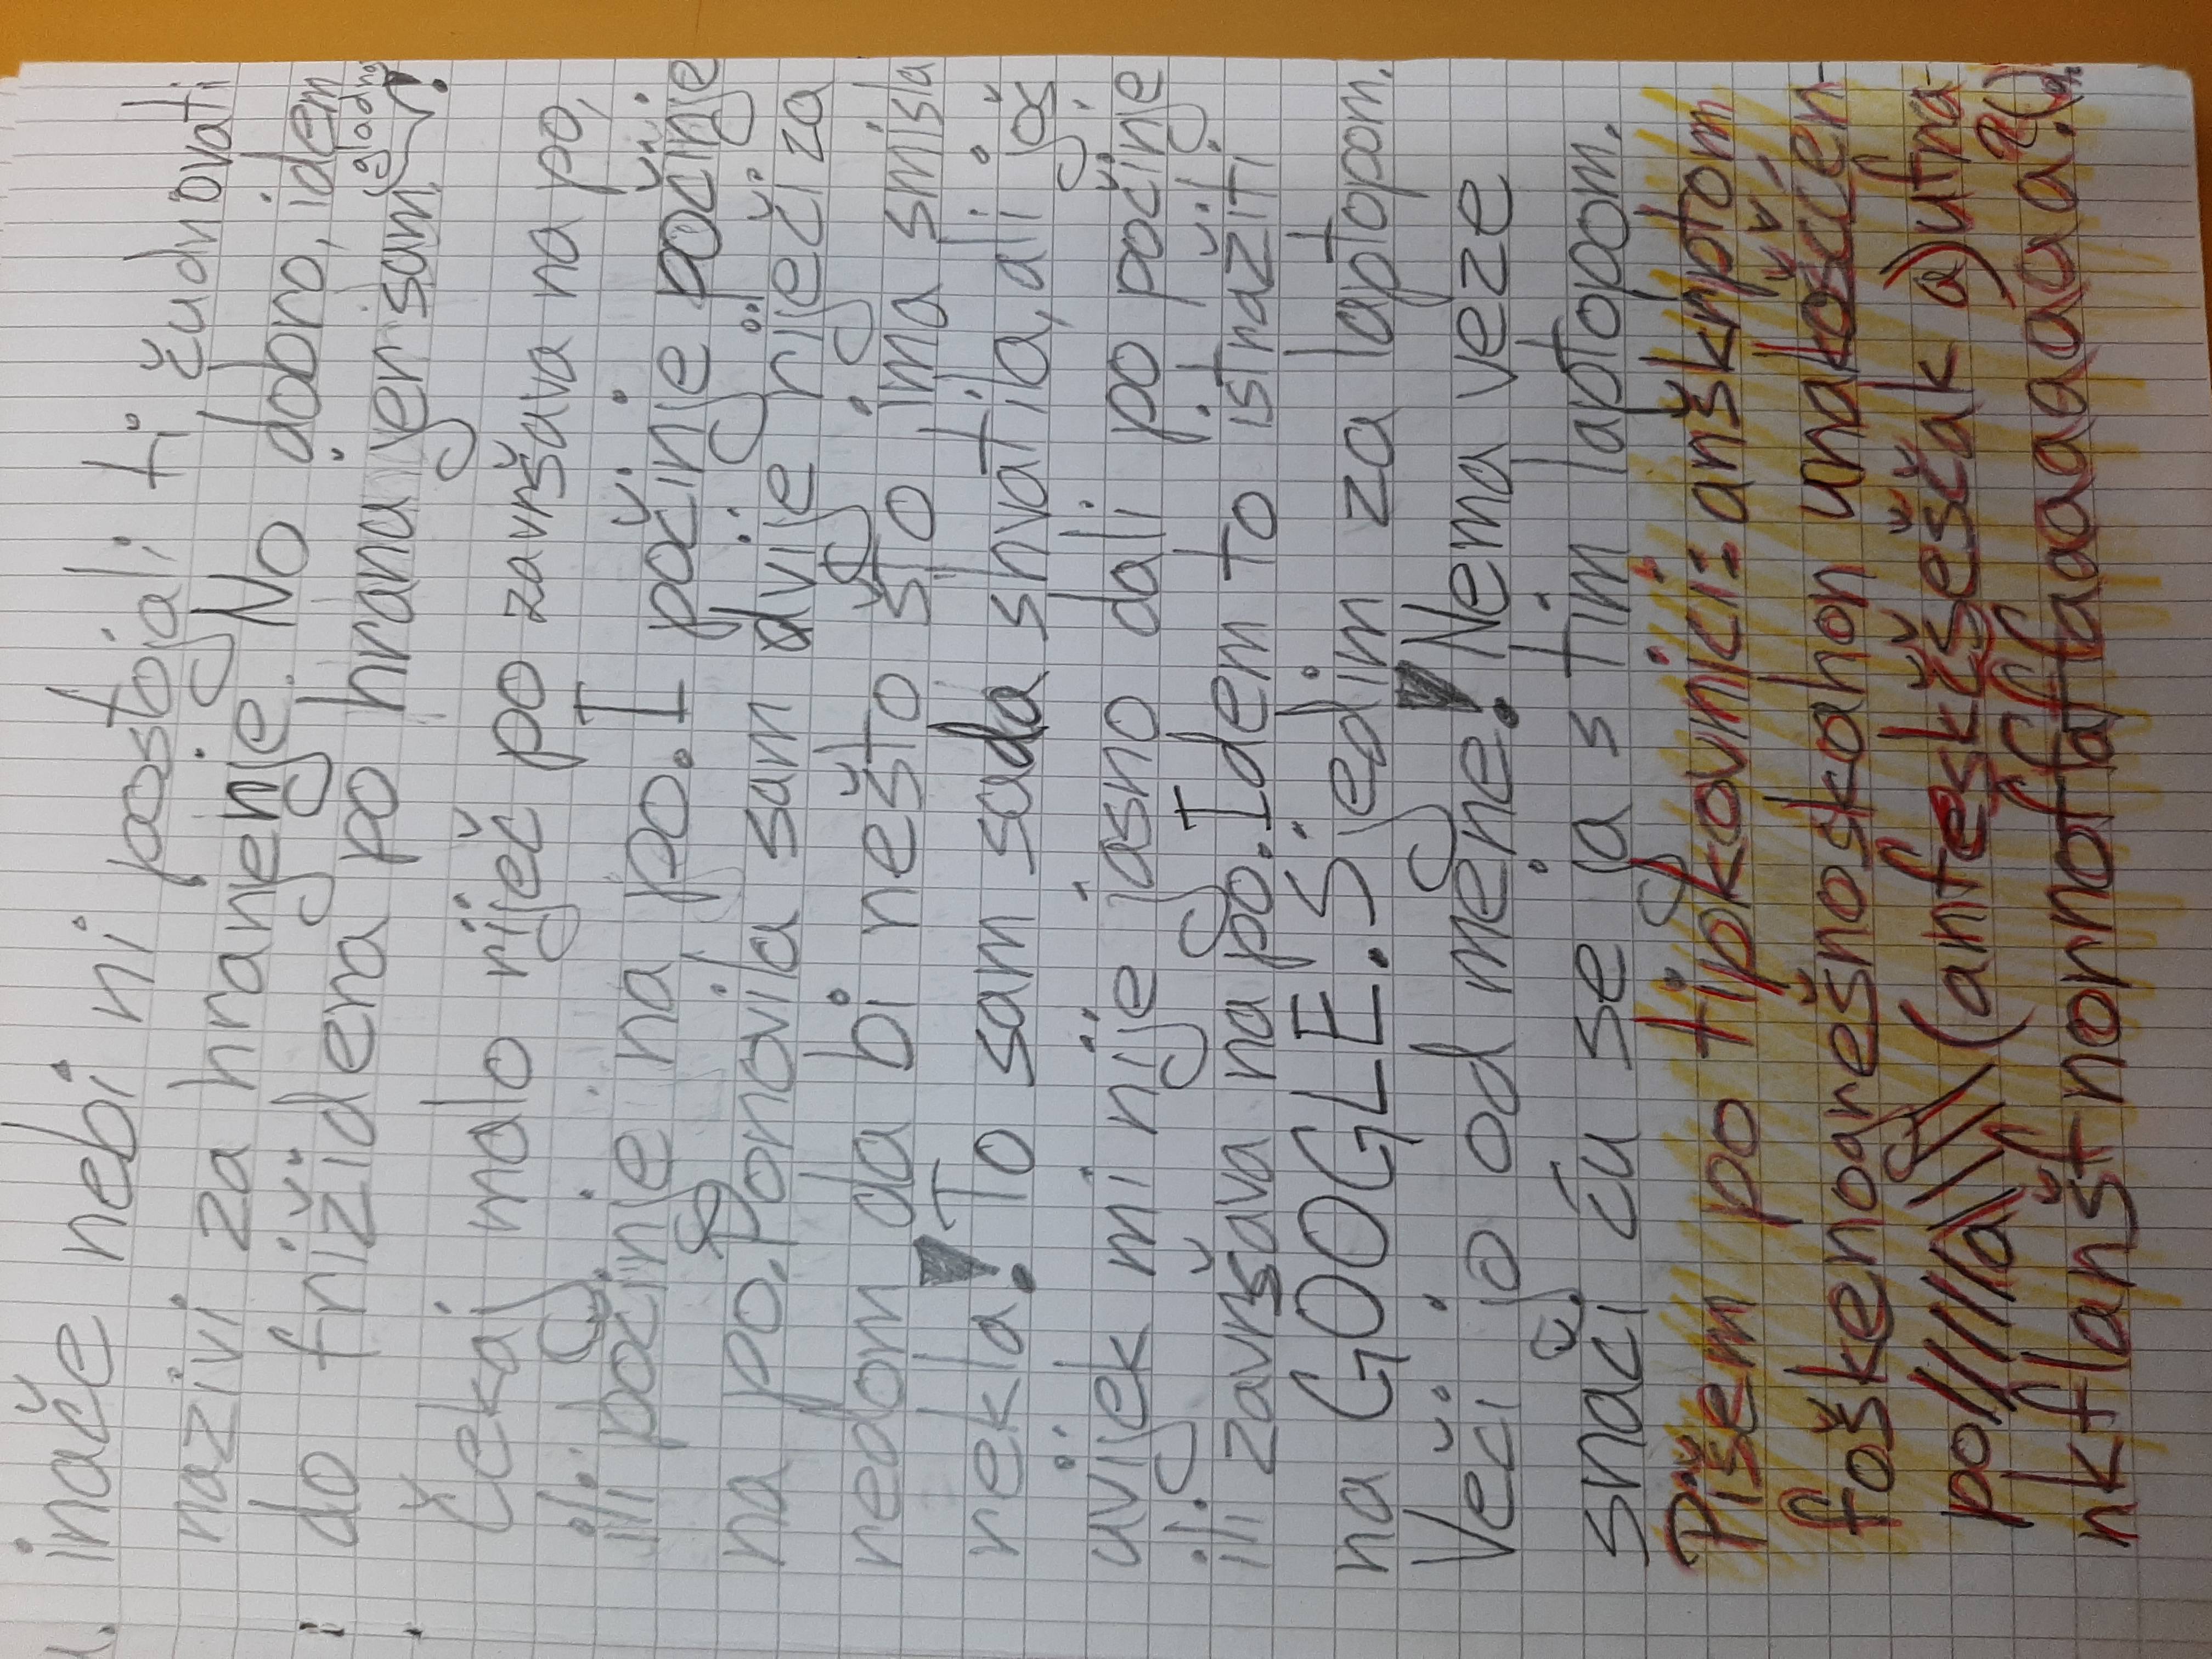 inače nebi ni postojali ti čudnovati
nazivi za hranjenje. No dobro, idem
do frižidera po hrana jer sam
(gladna)!
Čekaj malo riječ po završava na po,
ili počinje na po. I počinje počinje
na po, ponovila sam dvije riječi za
redom da bi nešto što ima smisla
rekla! To sam sada shvatila, ali još
uvijek mi nije jasno dali po počinje
ili završava na po. Idem to istražiti
na GOOGLE. Sjedim za laptopom.
Veći je od mene! Nema veze
snaći ću se ja s tim laptopom.
Pišem po tipkovnici: arškrptom